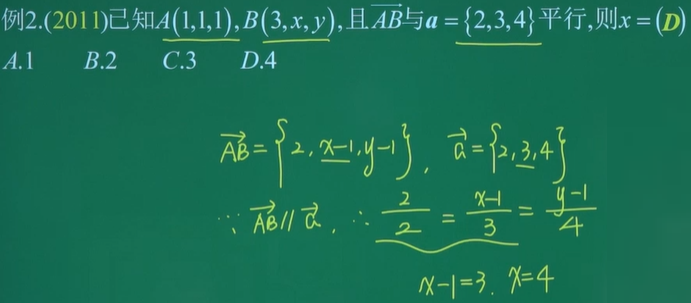 例2.(2011)已知A(1,1,1),B(3,x,y),且AB与a={2,3,4}平行,则x=(D)
A.1 B.2 C.3 D.4
AB⃗={2,x-1,y-1}, a⃗={2,3,4}
∵AB⃗//a⃗, ∴2/2=x-1/3=y-1/4
x-1=3. x=4